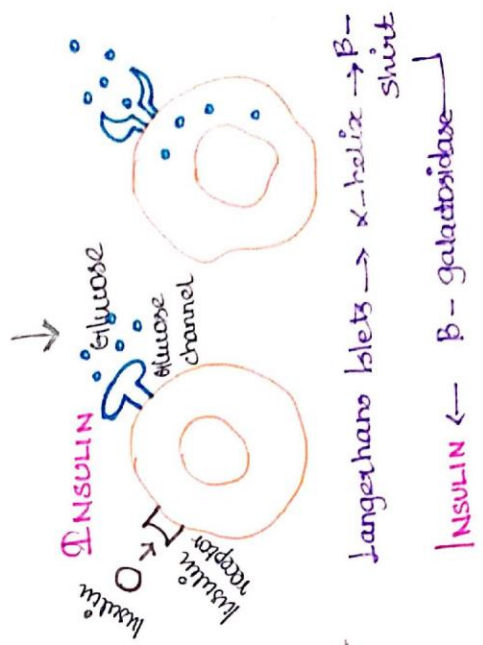 INSULIN
Insulin
Insulin
receptor
Glucose
Glucose
channel
Langerhans Islets → α-helix → β-
shirt
INSULIN ← β- galactosidase